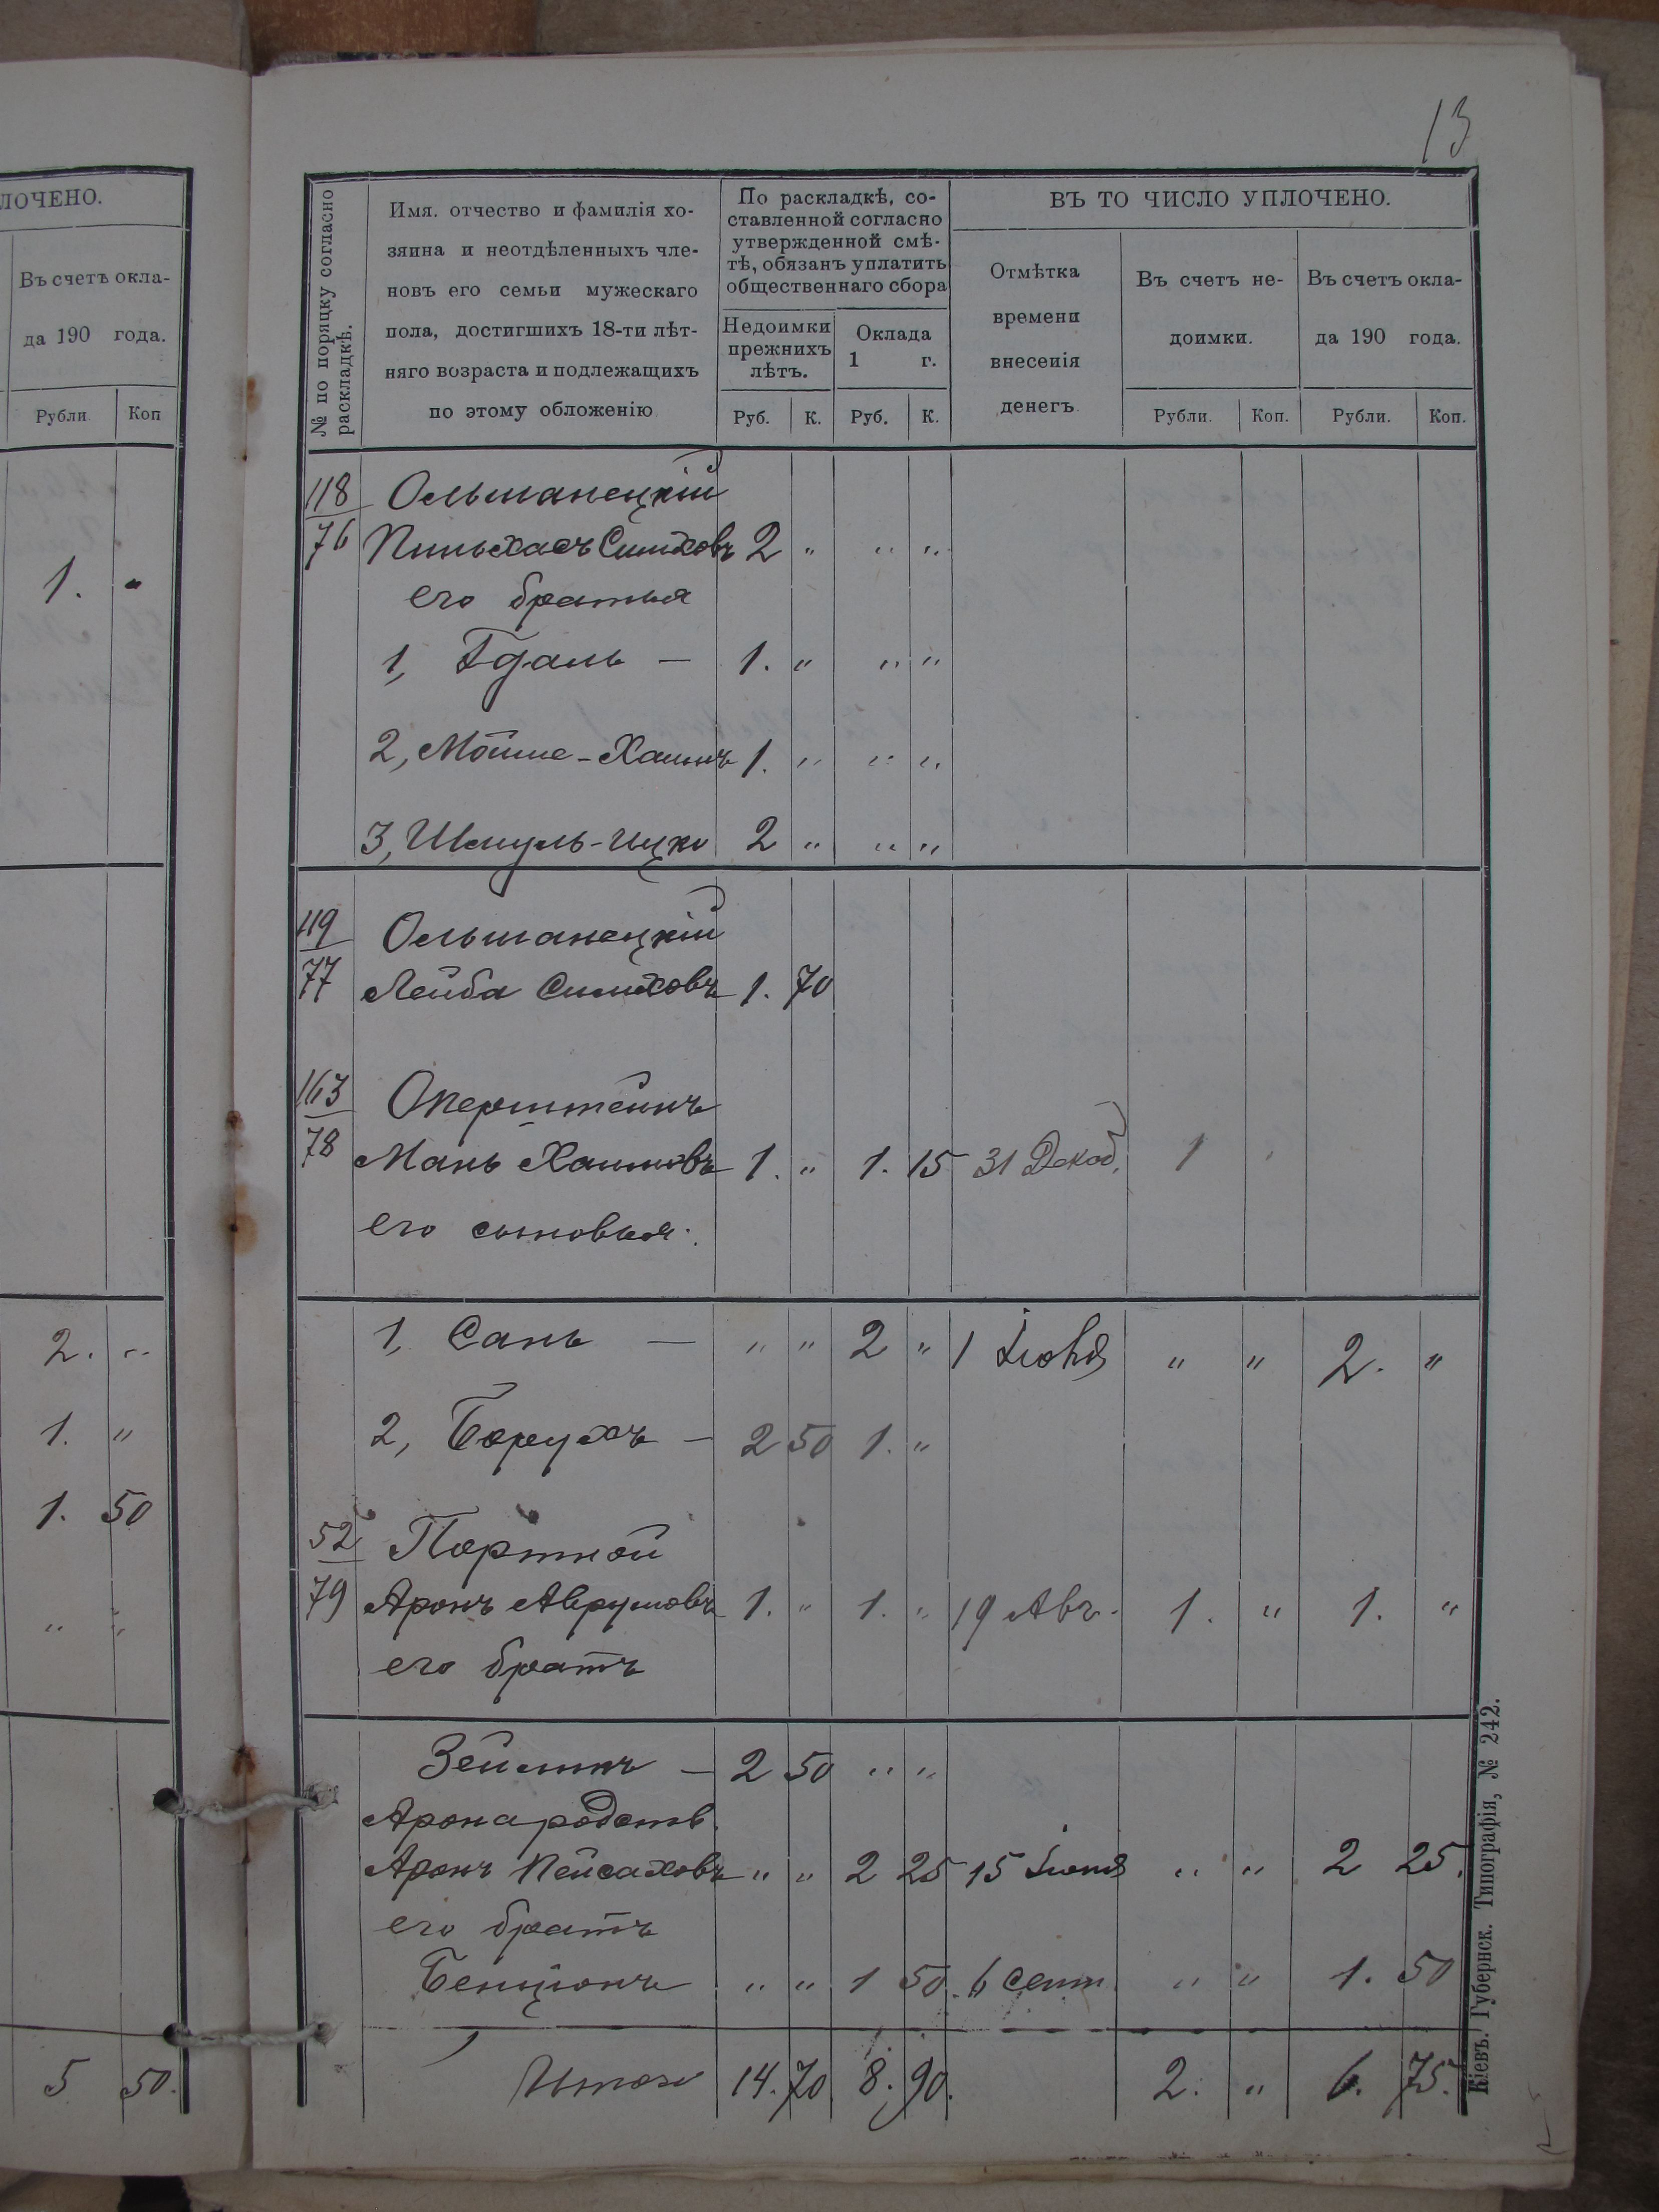 13
ЛОЧЕНО.
Въ счетъ окла-
да 190 года.
Рубли. Коп
1. "
2. "
1. "
1. 50
" "
5 50.
№ по поряцку согласно
раскладкѣ.
Имя. отчество и фамилія хо-
зяина и неотдѣленныхъ чле-
новъ его семьи мужескаго
пола, достигшихъ 18-ти лѣт-
няго возраста и подлежащихъ
по этому обложенію
По раскладкѣ, со-
ставленной согласно
утвержденной смѣ-
тѣ, обязанъ уплатить
общественнаго сбора
Недоимки
прежнихъ
лѣтъ.
Оклада
1 г.
Руб. К. Руб. К.
ВЪ ТО ЧИСЛО УПЛОЧЕНО.
Отмѣтка
времени
внесенія
денегъ.
Въ счетъ не-
доимки.
Въ счетъ окла-
да 190 года.
Рубли. Коп. Рубли. Коп.
118 Ольшанецкій
76 Пиньхасъ Симховъ 2 " " "
его братья
1, Гдаль — 1. " " "
2, Мойше-Хаимъ 1. " " "
3, Шмуль-Ицко 2 " " "
119 Ольшанецкій
77 Лейба Симховъ 1. 70
163 Оперштейнъ
78 Мань Хаимовъ 1. " 1. 15 31 Декаб. 1 "
его сыновья:
1, Сань — " " 2 " 1 Іюня " " 2. "
2, Борухъ — 2 50 1. "
52 Портной
79 Аронъ Аврумовъ 1. " 1. " 19 Авг. 1. " 1. "
его братъ
Зейликъ — 2 50 " "
Арона родств.
Аронъ Пейсаховъ " " 2 25 15 Іюня " " 2 25.
его братъ
Бенціонъ " " 1 50. 6 Сент. " " 1. 50
Итого 14. 70 8. 90. 2. " 6. 75.
Кіевъ. Губернск. Типографія, № 242.